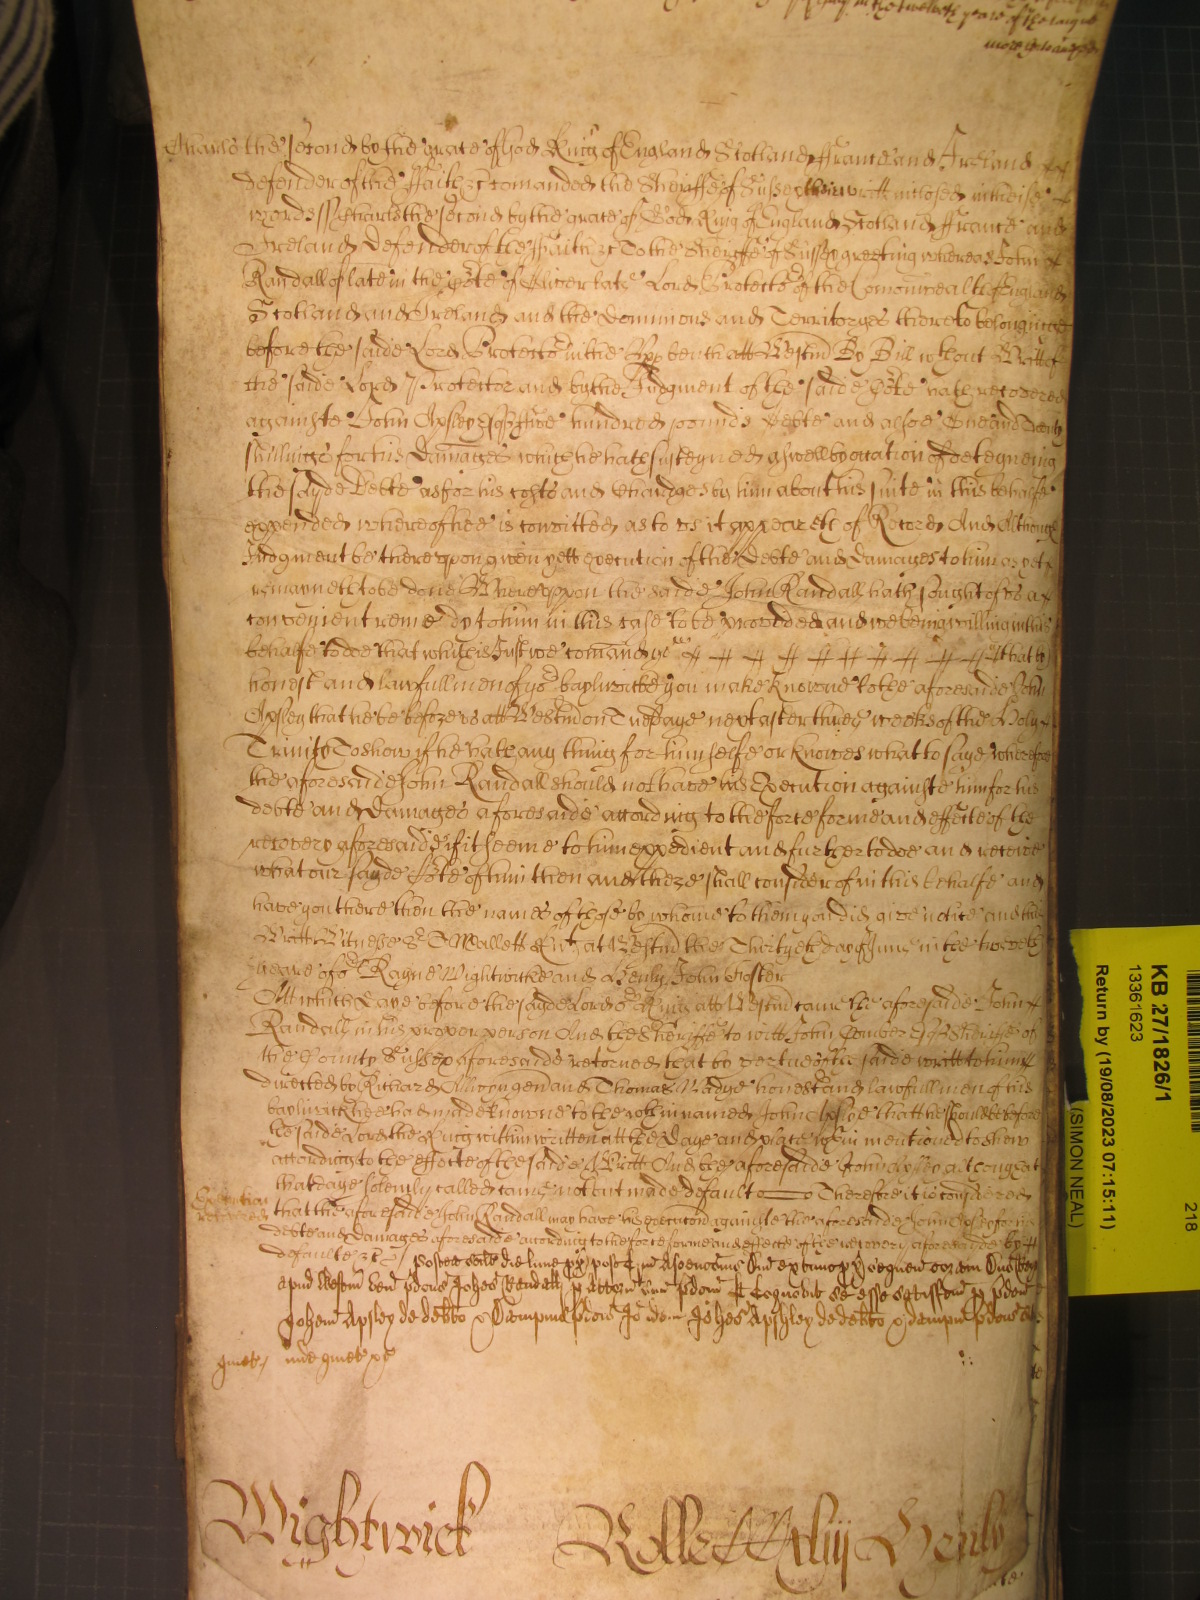 in the twelveth yeare of the raigne
Charles the second by the grace of God King of England Scotland ffrance and Ireland
defender of the ffaith &c comanded the Sheriffe of Sussex their writt inclosed in theise
wordes ss Charles the second by the grace of God King of England Scotland ffrance and
Ireland Defender of the ffaith &c To the Sheriffe of Sussex greeting whereas John
Randall of late in the Co̅te of Oliver late Lord Protecto^r of the Comonwealth of England
Scotland and Ireland and the Dominions and Territoryes thereto belonginge
before the saide Lord Protecto^r in the Upp bench att Westm̅ By Bill w^thout Writt of
the saide Lord Protector and by the Judgment of the saide Co̅te hath recovered
againste John Apsley Esq^r ffive hundred pounds Debte and alsoe One and Twenty
shillings for his Damages which he hath susteyned aswell by occation of deteyneing
the sayde Debte as for his costs and Chardges by him about his suite in this behalfe
expended whereof hee is convicted as to us it appeareth of Record And Although
Judgment be thereupon given yett execution of the Debte and Damages to him as yet
remayneth to be done Whereuppon the saide John Randall hath sought of us a
convenient remedy to him in this case to be provided and we being willing in this
behalfe to doe that which is Just we comand yo^w That by
honest and lawfull men of yo^r baylywicke you make knowne to the aforesaide John
Apsley that he be before us att Westm̅ on Tuesdaye next after three weeks of the Holy
Trinity To show if he hath any thing for himselfe or knowes what to saye wherefore
the aforesaide John Randall should not have his Execution againste him for his
debte and Damages aforesaide according to the force forme and effecte of the
recovery aforesaide if it seeme to him expedient and further to doe and receive
what our sayde Co̅te of him then and there shall consider of in this behalfe and
have you there then the names of those by whome to them you did give notice and this
Writt Witnesse S^r T Mallett K^nt at Westm̅ the Thirtyeth day of June in the twelveth
yeare of o^r Rayne Wightwicke and Henly John Foster
Att which Daye before the sayde Lord o^r King att Westm̅ came the aforesaide John
Randall in his proper person And the Sheriffe to witt John Comber Esq^r Sheriffe of
the County Sussex aforesaide retorned that by vertue of the saide writt to him
directed by Richard Allcory gen and Thomas Madge honest and lawfull men of his
baylywicke hee had made knowne to the w^thin named John Apsley that he should be before
the saide Lord the King within written att the Daye and place w^thin mentioned to show
according to the effecte of the saide Writt And the aforesaide John Apsley although att
that daye solemly called came not but made default Therefore it is considered
Execution
that the aforesaide John Randall may have his execution againste the aforesaide John Apsley for his
debte and damages aforesaide according to the force forme and effecte of the recovery aforesaide by
defaulte &c
postea scilt die lune px post in Regnu coram Dno Rege
apud Westm̅ ven pdcus Johes Randall p attorn suu pdcm et Cognovit se esse satisfcm p pdcm
Johem Apsley de debto & Dampnis pdcis Ideo idem Johes Apshley de debto & dampnis pdcis sit
quiet inde quiet &c
Wightwick Rolle xliij Henly
KB 27/1826/1
13361623
Return by (19/08/2023 07:15:11)
(SIMON NEAL)
218